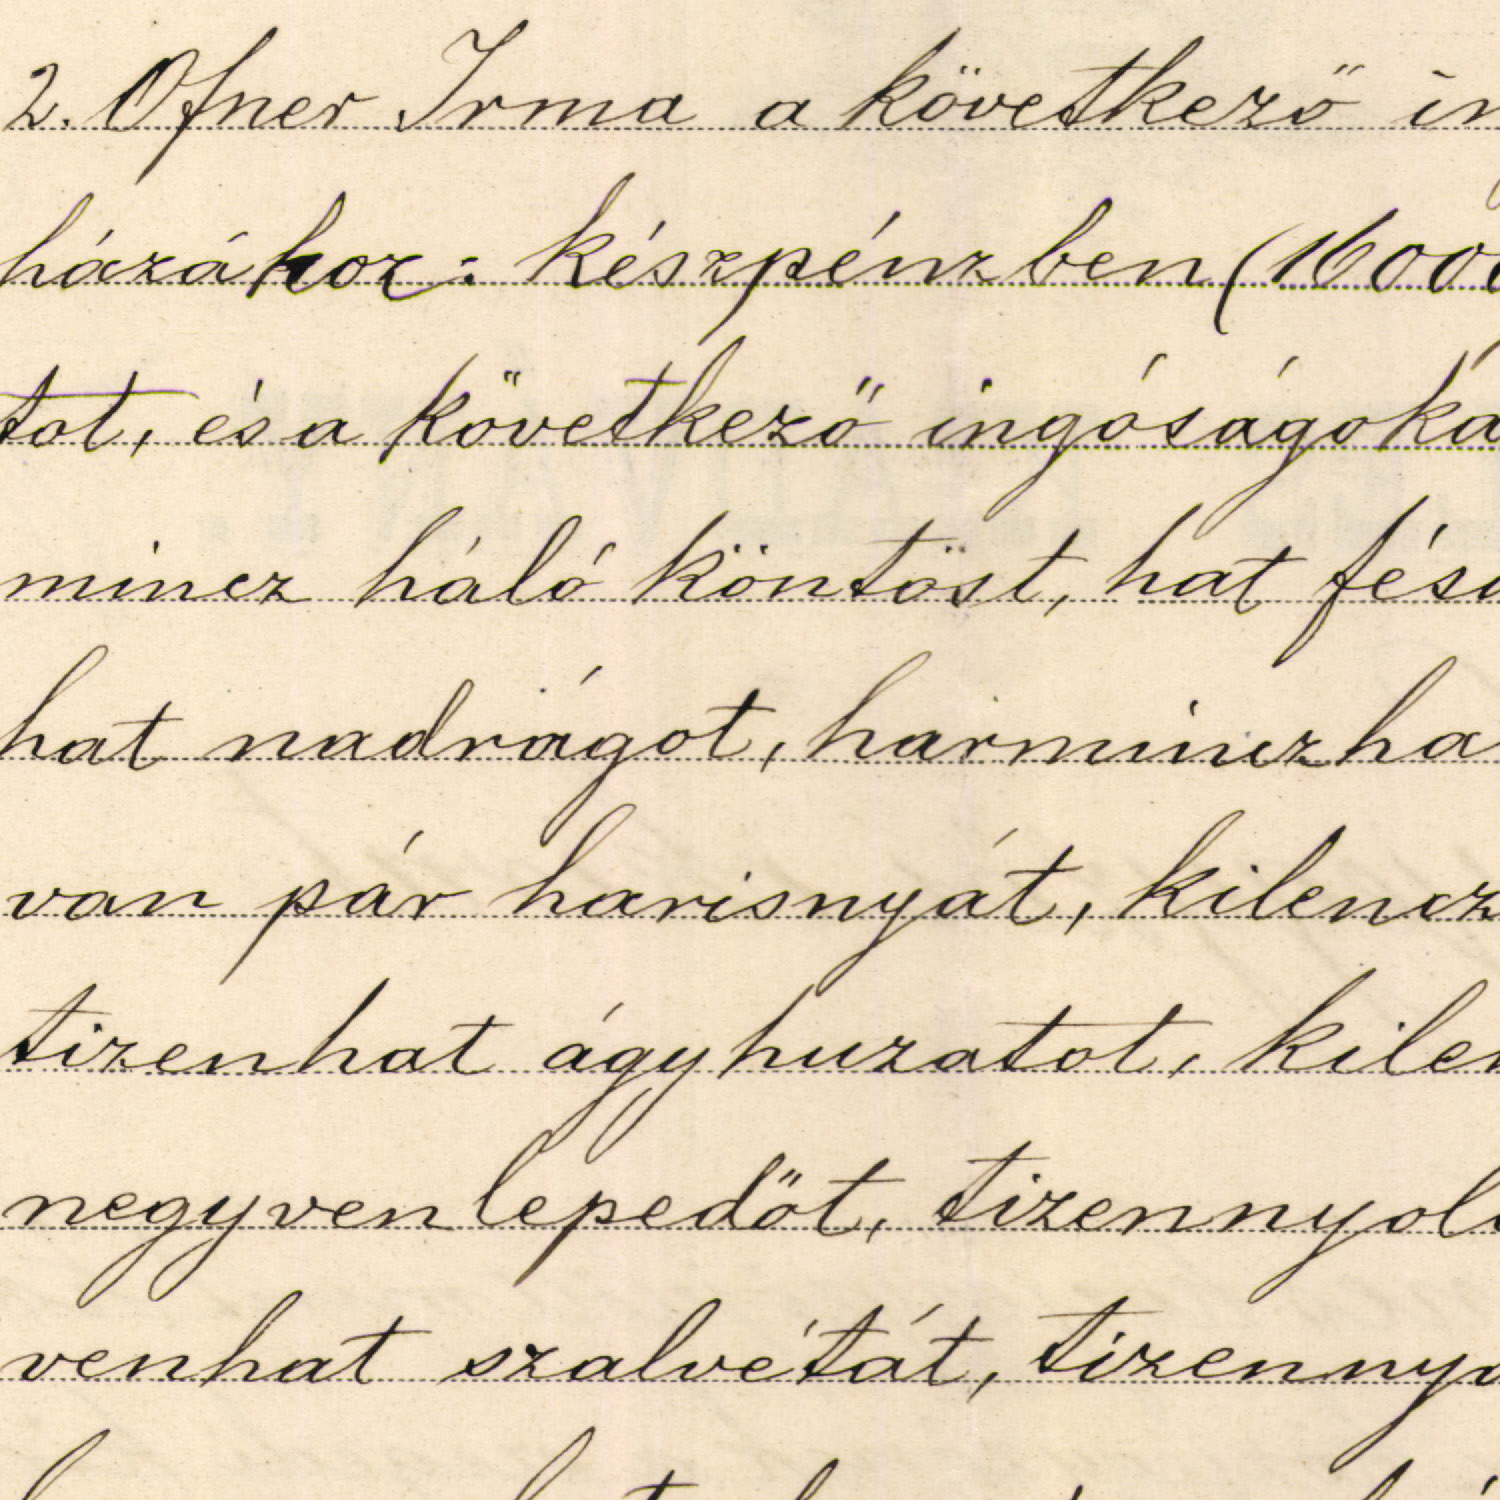 2. Ofner Irma a következő in
házához: készpénzben (1600
tot, és a következő ingóságoka
mincz háló köntöst, hat fésü
hat nadrágot, harminczha
van pár harisnyát, kilencz
tizenhat ágyhuzatot, kilen
negyven lepedőt, tizennyol
venhat szalvétát, tizennyo